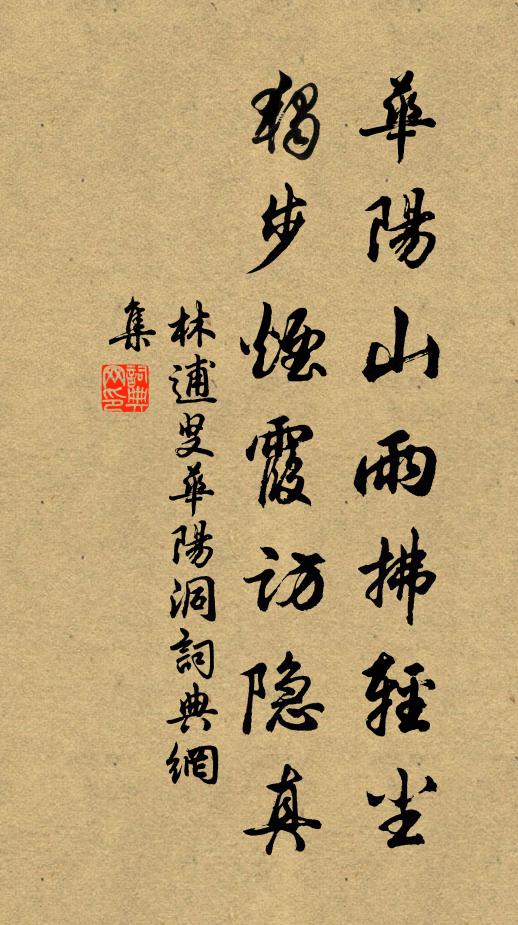 華陽山雨拂輕尘
獨步煙霞访隐真
林逋叟華陽洞詞典網
集
詞典網印